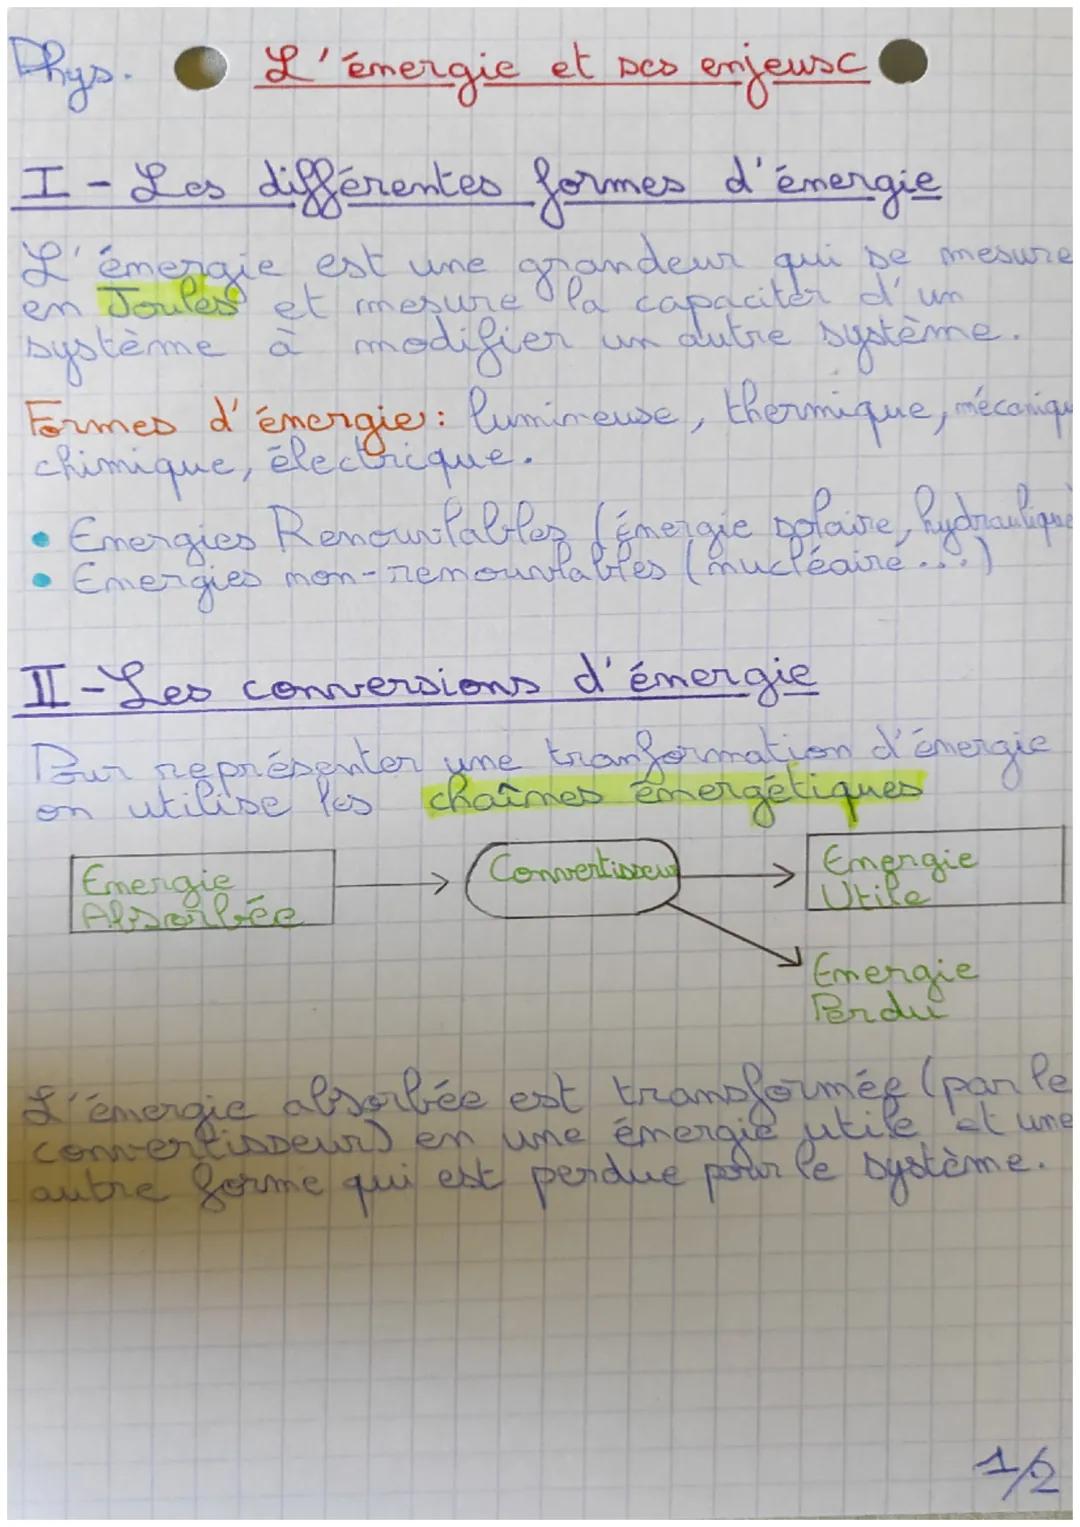 Phys. L'énergie et ses enjeux
I - Les différentes formes d'énergie
L'énergie est une grandeur qui se mesure
en Joules et mesure la capaciter d'un
système à modifier un autre système.
Formes d'énergie : lumineuse, thermique, mécanique
chimique, électrique.
• Energies Renouvlables (énergie solaire, hydraulique
• Energies non-renouvlables (nucléaire...)
II - Les conversions d'énergie
Pour représenter une tranformation d'énergie
on utilise les chaînes énergétiques
Energie
Absorbée
Convertisseur
Energie
Utile
Energie
Perdu
L'énergie absorbée est transformée (par le
convertisseur) en une énergie utile et une
autre forme qui est perdue pour le système.
1/2